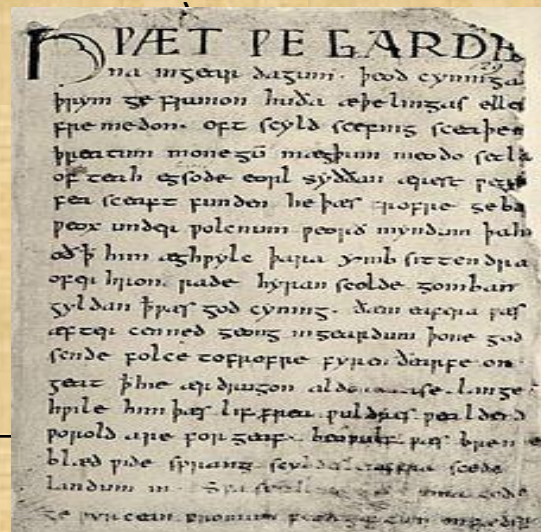 HǷÆT ǷE GARDE
na ingear dagum. þeod cyninga
þrym ge frunon huða æþelingas elle
fre medon. oft scyld scefing sceaþe
þreatum monegū mægþum meodo setla
of teah egsode eorl syððan ærest
fea sceaft funden he þæs frofre geba
ƿeox under ƿolcnum ƿeorð myndum þah
oð ꝥ him æghƿylc þara ymb sittendra
ofer hron rade hyran scolde gomban
gyldan ꝥ ƿæs god cyning. ðæm eafera ƿæs
æfter cenned geong in geardum þone god
sende folce tofrofre fyren ðearfe on
geat ꝥ hie ær drugon lange
hƿile him þæs lif frea ƿuldres ƿealdend
ƿorold are for geaf. beoƿulf ƿæs breme
blæd ƿide sprang scyldes eafera scede
landum in. Sƿa guma gode
ge ƿyrcean fromum